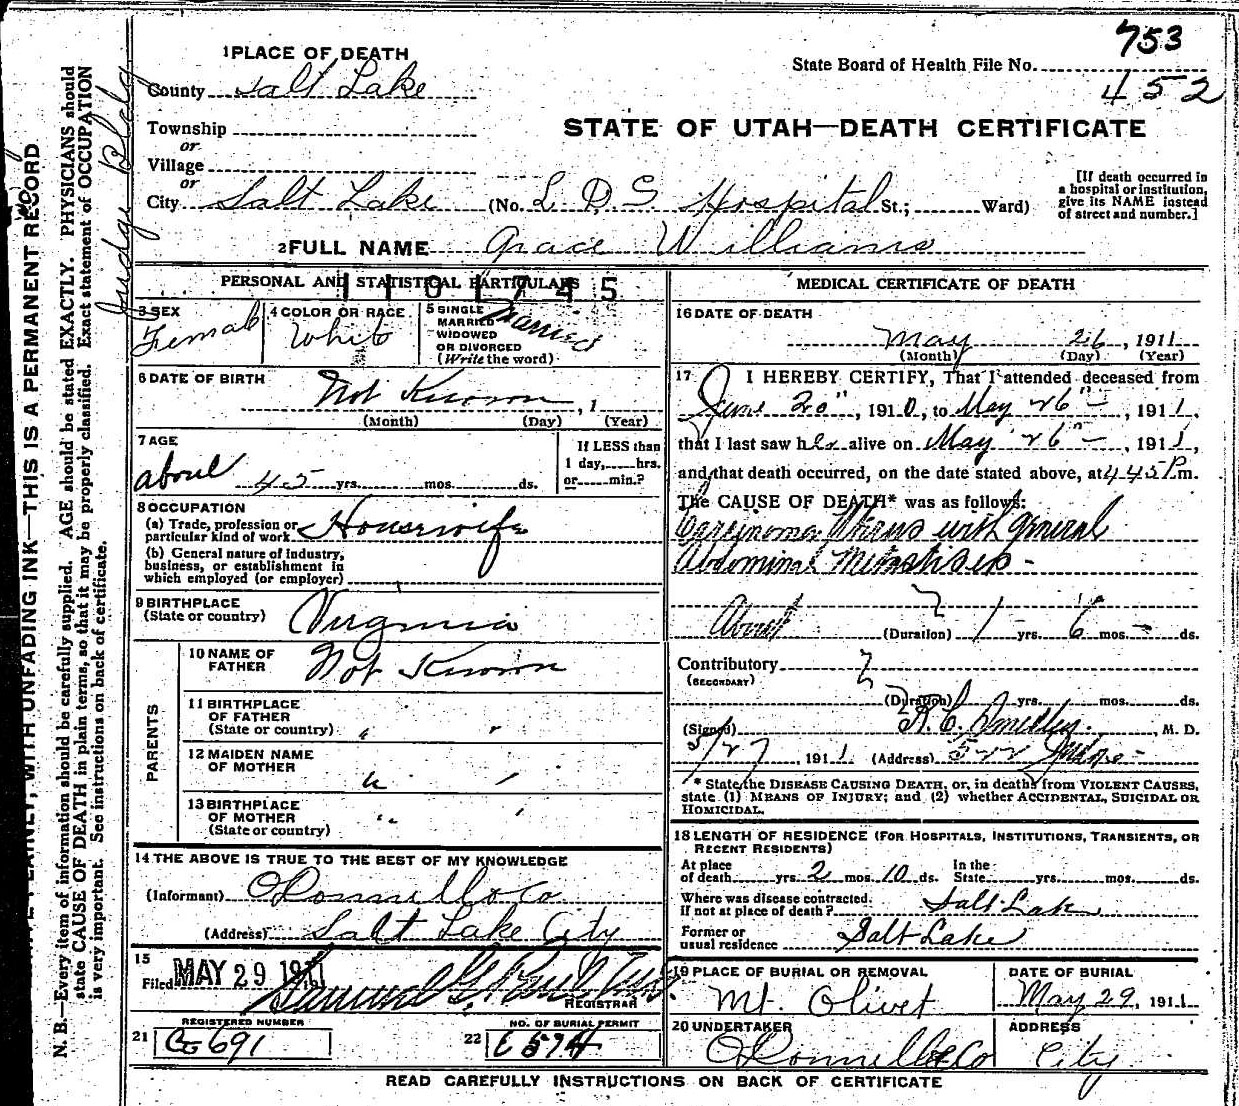 753
State Board of Health File No.
452
1 PLACE OF DEATH
County Salt Lake
STATE OF UTAH—DEATH CERTIFICATE
Township
or
Village
or
City Salt Lake (No. L D S Hospital St.; Ward)
[If death occurred in a hospital or institution, give its NAME instead of street and number.]
2 FULL NAME Grace Williams
PERSONAL AND STATISTICAL PARTICULARS
110745
3 SEX
Female
4 COLOR OR RACE
White
5 SINGLE
MARRIED
WIDOWED
OR DIVORCED
(Write the word)
Married
6 DATE OF BIRTH
Not Known, 1
(Month) (Day) (Year)
7 AGE
about 45 yrs. mos. ds.
If LESS than
1 day, hrs.
or min.?
8 OCCUPATION
(a) Trade, profession or
particular kind of work Housewife
(b) General nature of industry,
business, or establishment in
which employed (or employer)
9 BIRTHPLACE
(State or country) Virginia
PARENTS
10 NAME OF
FATHER Not Known
11 BIRTHPLACE
OF FATHER
(State or country) " "
12 MAIDEN NAME
OF MOTHER " "
13 BIRTHPLACE
OF MOTHER
(State or country) " "
14 THE ABOVE IS TRUE TO THE BEST OF MY KNOWLEDGE
(Informant) O'Donnell & Co
(Address) Salt Lake City
15
Filed MAY 29 1911
REGISTRAR
21 REGISTERED NUMBER
691
22 NO. OF BURIAL PERMIT
E 574
MEDICAL CERTIFICATE OF DEATH
16 DATE OF DEATH
May 26, 1911
(Month) (Day) (Year)
17 I HEREBY CERTIFY, That I attended deceased from
June 20", 1910, to May 26", 1911,
that I last saw her alive on May 26", 1911,
and that death occurred, on the date stated above, at 4 45 P.m.
The CAUSE OF DEATH* was as follows:
Carcinoma Uterus with general
Abdominal Metastises
About (Duration) 1 yrs. 6 mos. ds.
Contributory
(SECONDARY)
(Duration) yrs. mos. ds.
(Signed) , M. D.
5/27, 1911 (Address) 522 Judge
* State the DISEASE CAUSING DEATH, or, in deaths from VIOLENT CAUSES,
state (1) MEANS OF INJURY; and (2) whether ACCIDENTAL, SUICIDAL OR
HOMICIDAL.
18 LENGTH OF RESIDENCE (FOR HOSPITALS, INSTITUTIONS, TRANSIENTS, OR
RECENT RESIDENTS)
At place
of death yrs. 2 mos. 10 ds.
In the
State yrs. mos. ds.
Where was disease contracted.
if not at place of death? Salt Lake
Former or
usual residence Salt Lake
19 PLACE OF BURIAL OR REMOVAL
Mt. Olivet
DATE OF BURIAL
May 29, 1911
20 UNDERTAKER
O'Donnell & Co
ADDRESS
City
READ CAREFULLY INSTRUCTIONS ON BACK OF CERTIFICATE
PLAINLY, WITH UNFADING INK—THIS IS A PERMANENT RECORD
N. B.—Every item of information should be carefully supplied. AGE should be stated EXACTLY. PHYSICIANS should
state CAUSE OF DEATH in plain terms, so that it may be properly classified. Exact statement of OCCUPATION
is very important. See instructions on back of certificate.
Judge Bldg